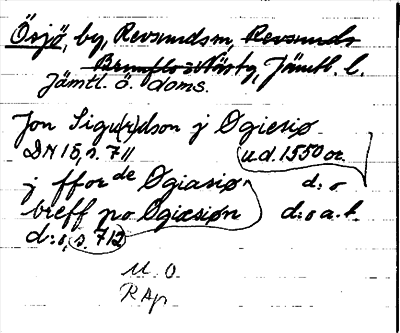 Ösjö, by, Revsundsm, Revsunds
Brunflo Västg, Jämtl. l.
Jämtl. ö. doms.
Jon Sigu(r)dson j Ogiesiø
DN 15, s. 711 u.d. 1550 or.
j fforde Ogiasiø d:o
breff po Ogiæsiøn d:o a.t.
d:o, s. 712
M. O.
RAp